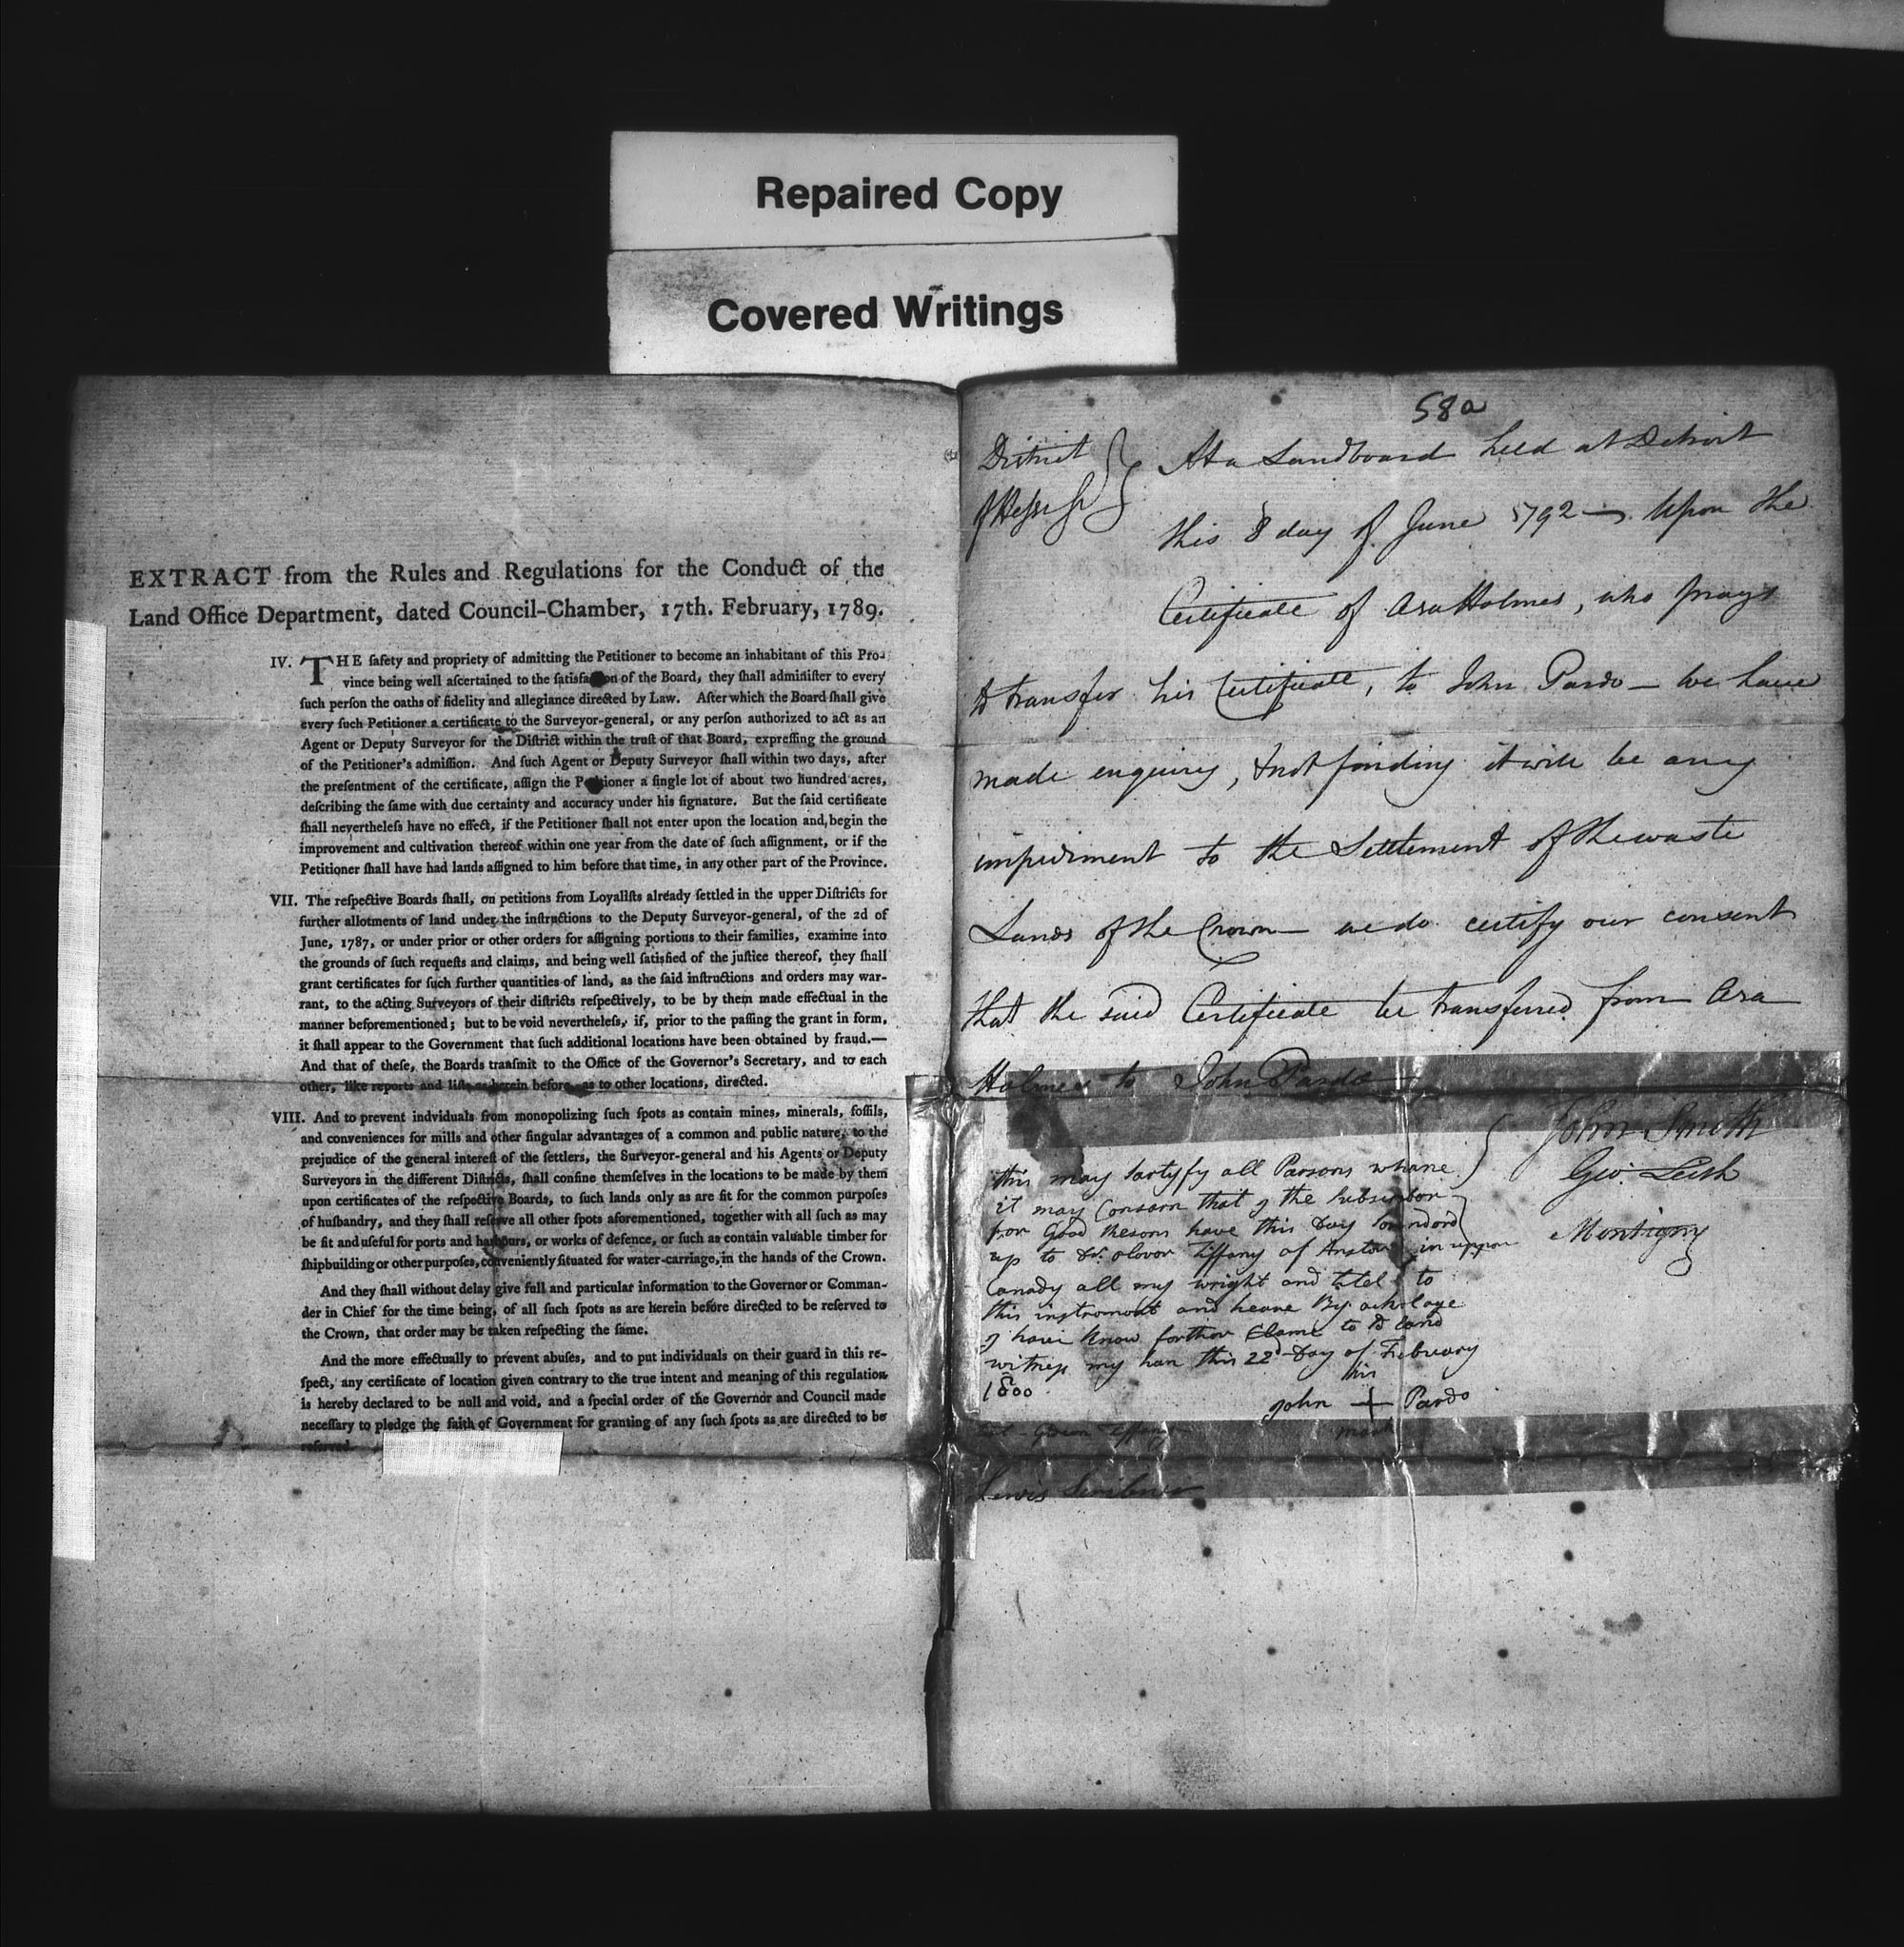 Repaired Copy
Covered Writings
EXTRACT from the Rules and Regulations for the Conduct of the
Land Office Department, dated Council-Chamber, 17th. February, 1789.
IV. THE ſafety and propriety of admitting the Petitioner to become an inhabitant of this Pro-
vince being well aſcertained to the satisfa on of the Board, they ſhall adminiſter to every
ſuch perſon the oaths of fidelity and allegiance directed by Law. After which the Board ſhall give
every ſuch Petitioner a certificate to the Surveyor-general, or any perſon authorized to act as an
Agent or Deputy Surveyor for the Diſtrict within the truſt of that Board, expreſſing the ground
of the Petitioner's admiſſion. And ſuch Agent or Deputy Surveyor ſhall within two days, after
the preſentment of the certificate, aſſign the Petitioner a ſingle lot of about two hundred acres,
deſcribing the ſame with due certainty and accuracy under his ſignature. But the ſaid certificate
ſhall nevertheleſs have no effect, if the Petitioner ſhall not enter upon the location and begin the
improvement and cultivation thereof within one year from the date of ſuch aſſignment, or if the
Petitioner ſhall have had lands aſſigned to him before that time, in any other part of the Province.
VII. The reſpective Boards ſhall, on petitions from Loyaliſts already ſettled in the upper Diſtricts for
further allotments of land under the inſtructions to the Deputy Surveyor-general, of the 2d of
June, 1787, or under prior or other orders for aſſigning portions to their families, examine into
the grounds of ſuch requeſts and claims, and being well ſatisfied of the juſtice thereof, they ſhall
grant certificates for ſuch further quantities of land, as the ſaid inſtructions and orders may war-
rant, to the acting Surveyors of their diſtricts reſpectively, to be by them made effectual in the
manner beforementioned; but to be void nevertheleſs, if, prior to the paſſing the grant in form,
it ſhall appear to the Government that ſuch additional locations have been obtained by fraud.—
And that of theſe, the Boards tranſmit to the Office of the Governor's Secretary, and to each
other, like reports and liſts as herein before, as to other locations, directed.
VIII. And to prevent indviduals from monopolizing ſuch ſpots as contain mines, minerals, foſſils,
and conveniences for mills and other ſingular advantages of a common and public nature, to the
prejudice of the general intereſt of the ſettlers, the Surveyor-general and his Agents or Deputy
Surveyors in the different Diſtricts, ſhall confine themſelves in the locations to be made by them
upon certificates of the reſpective Boards, to ſuch lands only as are fit for the common purpoſes
of huſbandry, and they ſhall reſerve all other ſpots aforementioned, together with all ſuch as may
be fit and uſeful for ports and harbours, or works of defence, or ſuch as contain valuable timber for
ſhipbuilding or other purpoſes, conveniently ſituated for water-carriage, in the hands of the Crown.
And they ſhall without delay give full and particular information to the Governor or Comman-
der in Chief for the time being, of all ſuch ſpots as are herein before directed to be reſerved to
the Crown, that order may be taken reſpecting the ſame.
And the more effectually to prevent abuſes, and to put individuals on their guard in this re-
ſpect, any certificate of location given contrary to the true intent and meaning of this regulation
is hereby declared to be null and void, and a ſpecial order of the Governor and Council made
neceſſary to pledge the faith of Government for granting of any ſuch ſpots as are directed to be
reſerved.
58a
District
of Hesse
At a Landboard held at Detroit
this 8 day of June 1792— Upon the
Certificate of Asa Holmes, who prays
to transfer his Certificate, to John Pardo— we have
made enquiry, & not finding it will be any
impediment to the Settlement of the waste
Lands of the Crown— we do certify our consent
that the said Certificate be transferred from Asa
Holmes to John Pardo—
John Smith
Geo: Leith
Montigny
this may Sartyfy all Parsons whane
it may Consarn that I the Subscribor
for Good Resons have this Day Sorrndord
up to Dr. olovor Tiffany of in uppor
Canady all my wright and titel to
this instromont and heare By acknolage
I have know forthor Clame to sd land
witness my han this 22d Day of February
1800
his
John + Pardo
mark
Gideon Tiffany
Lewis